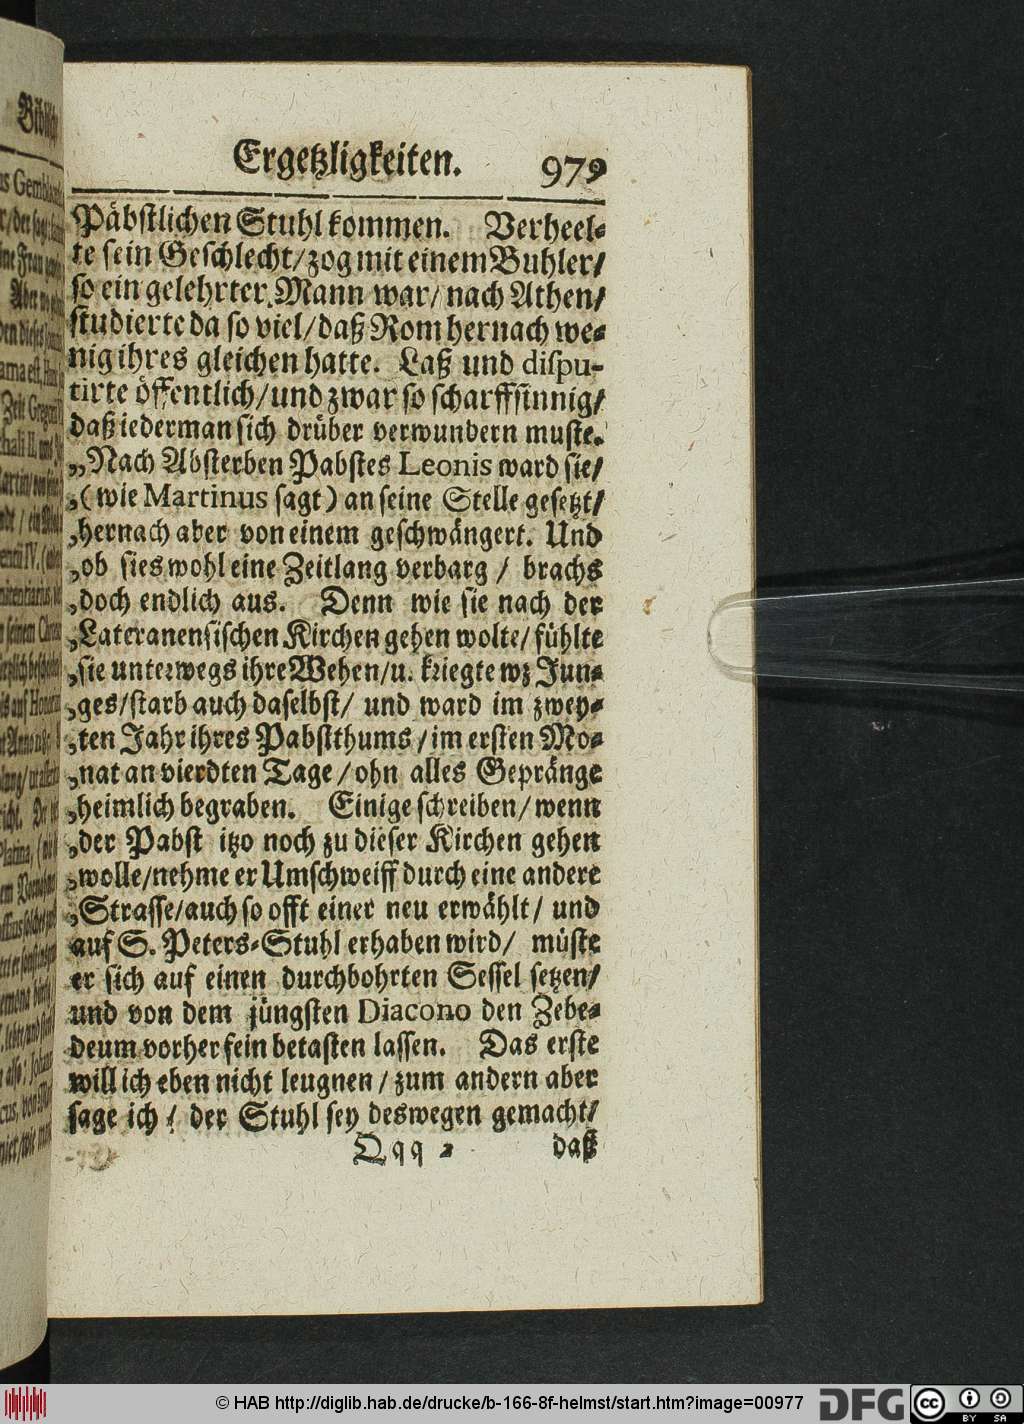 Ergetzligkeiten. 979
Päbstlichen Stuhl kommen. Verheel-
te sein Geschlecht/zog mit einem Buhler/
so ein gelehrter Mann war/ nach Athen/
studierte da so viel/daß Rom hernach we-
nig ihres gleichen hatte. Laß und dispu-
tirte öffentlich/und zwar so scharffsinnig/
daß iederman sich drüber verwundern muste.
„Nach Absterben Pabstes Leonis ward sie/
„(wie Martinus sagt) an seine Stelle gesetzt/
„hernach aber von einem geschwängert. Und
„ob sies wohl eine Zeitlang verbarg / brachs
„doch endlich aus. Denn wie sie nach der
„Lateranensischen Kirchen gehen wolte/fühlte
„sie unterwegs ihre Wehen/u. kriegte wz Jun-
„ges/starb auch daselbst/ und ward im zwey-
„ten Jahr ihres Pabstthums/im ersten Mo-
„nat an vierdten Tage/ohn alles Gepränge
„heimlich begraben. Einige schreiben/wenn
„der Pabst itzo noch zu dieser Kirchen gehen
„wolle/nehme er Umschweiff durch eine andere
„Strasse/auch so offt einer neu erwählt/ und
auf S. Peters-Stuhl erhaben wird/ müste
er sich auf einen durchbohrten Sessel setzen/
und von dem jüngsten Diacono den Zebe-
deum vorher fein betasten lassen. Das erste
will ich eben nicht leugnen/zum andern aber
sage ich / der Stuhl sey deswegen gemacht/
Qqq 2 daß
© HAB http://diglib.hab.de/drucke/b-166-8f-helmst/start.htm?image=00977 DFG cc BY SA